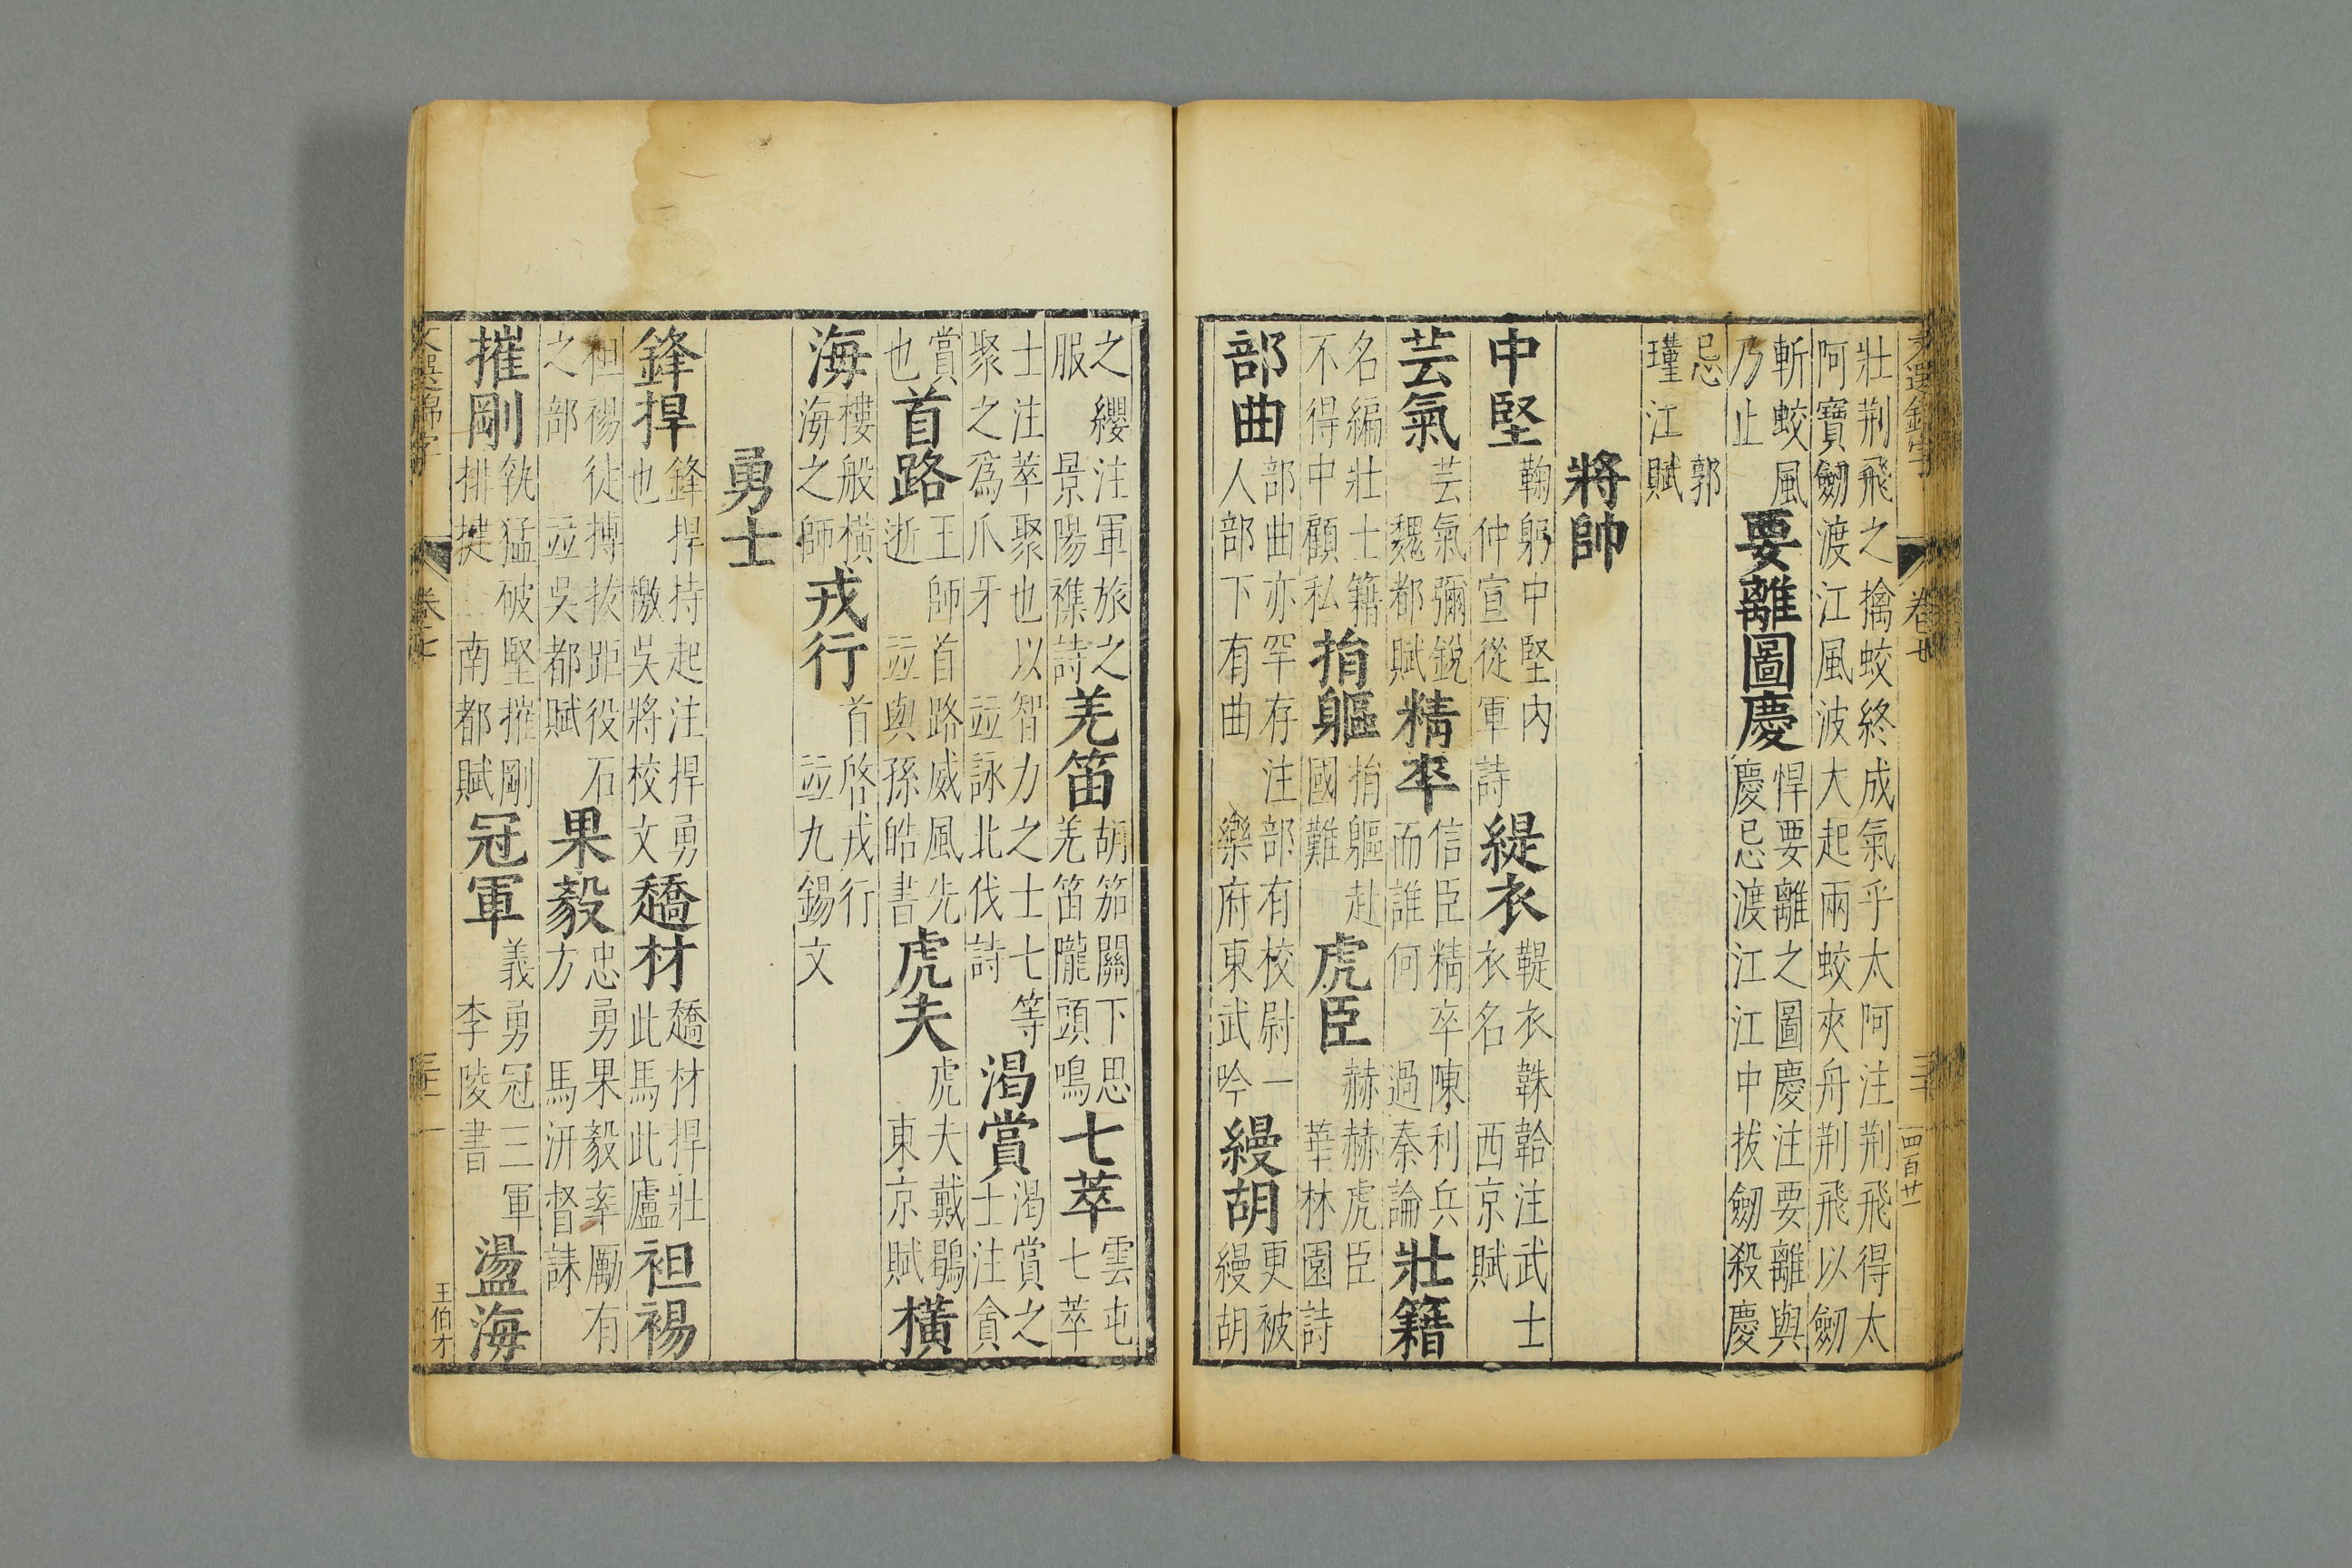 壯荆飛之擒蛟終成氣乎太阿注荆飛得太
阿寶劒渡江風波大起兩蛟夾舟荆飛以劒
斬蛟風
乃止
要離圖慶
悍要離之圖慶注要離與
慶忌渡江江中拔劒殺慶
忌 郭
瑾江賦
將帥
中堅
鞠躬中堅内
仲宣從軍詩
緹衣
鞮衣韎韐注武士
衣名 西京賦
芸氣
芸氣彌銳
魏都賦
精卒
信臣精卒陳利兵
而誰何 過秦論
壯籍
名編壯士籍
不得中顧私
捐軀
捐軀赴
國難
虎臣
赫赫虎臣
華林園詩
部曲
部曲亦罕存注部有校尉一
人部下有曲 樂府東武吟
縵胡
更被
縵胡
之纓注軍旅之
服 景陽襍詩
羌笛
胡笳關下思
羌笛隴頭鳴
七萃
雲屯
七萃
士注萃聚也以智力之士七等
聚之爲爪牙 竝詠北伐詩
渴賞
渴賞之
士注貪
賞
也
首路
王師首路威風先
逝 竝與孫皓書
虎夫
虎夫戴鶡
東京賦
橫
海
樓般橫
海之師
戎行
首啓戎行
竝九錫文
勇士
鋒捍
鋒捍持起注捍勇
也 檄吳將校文
趫材
趫材捍壯
此馬此廬
袒裼
袒裼徒搏拔距役石
之部 竝吳都賦
果毅
忠勇果毅率厲有
方 馬汧督誄
摧剛
執猛破堅摧剛
排揵 南都賦
冠軍
義勇冠三軍
李陵書
盪海
卷廿
四百廿
王伯才